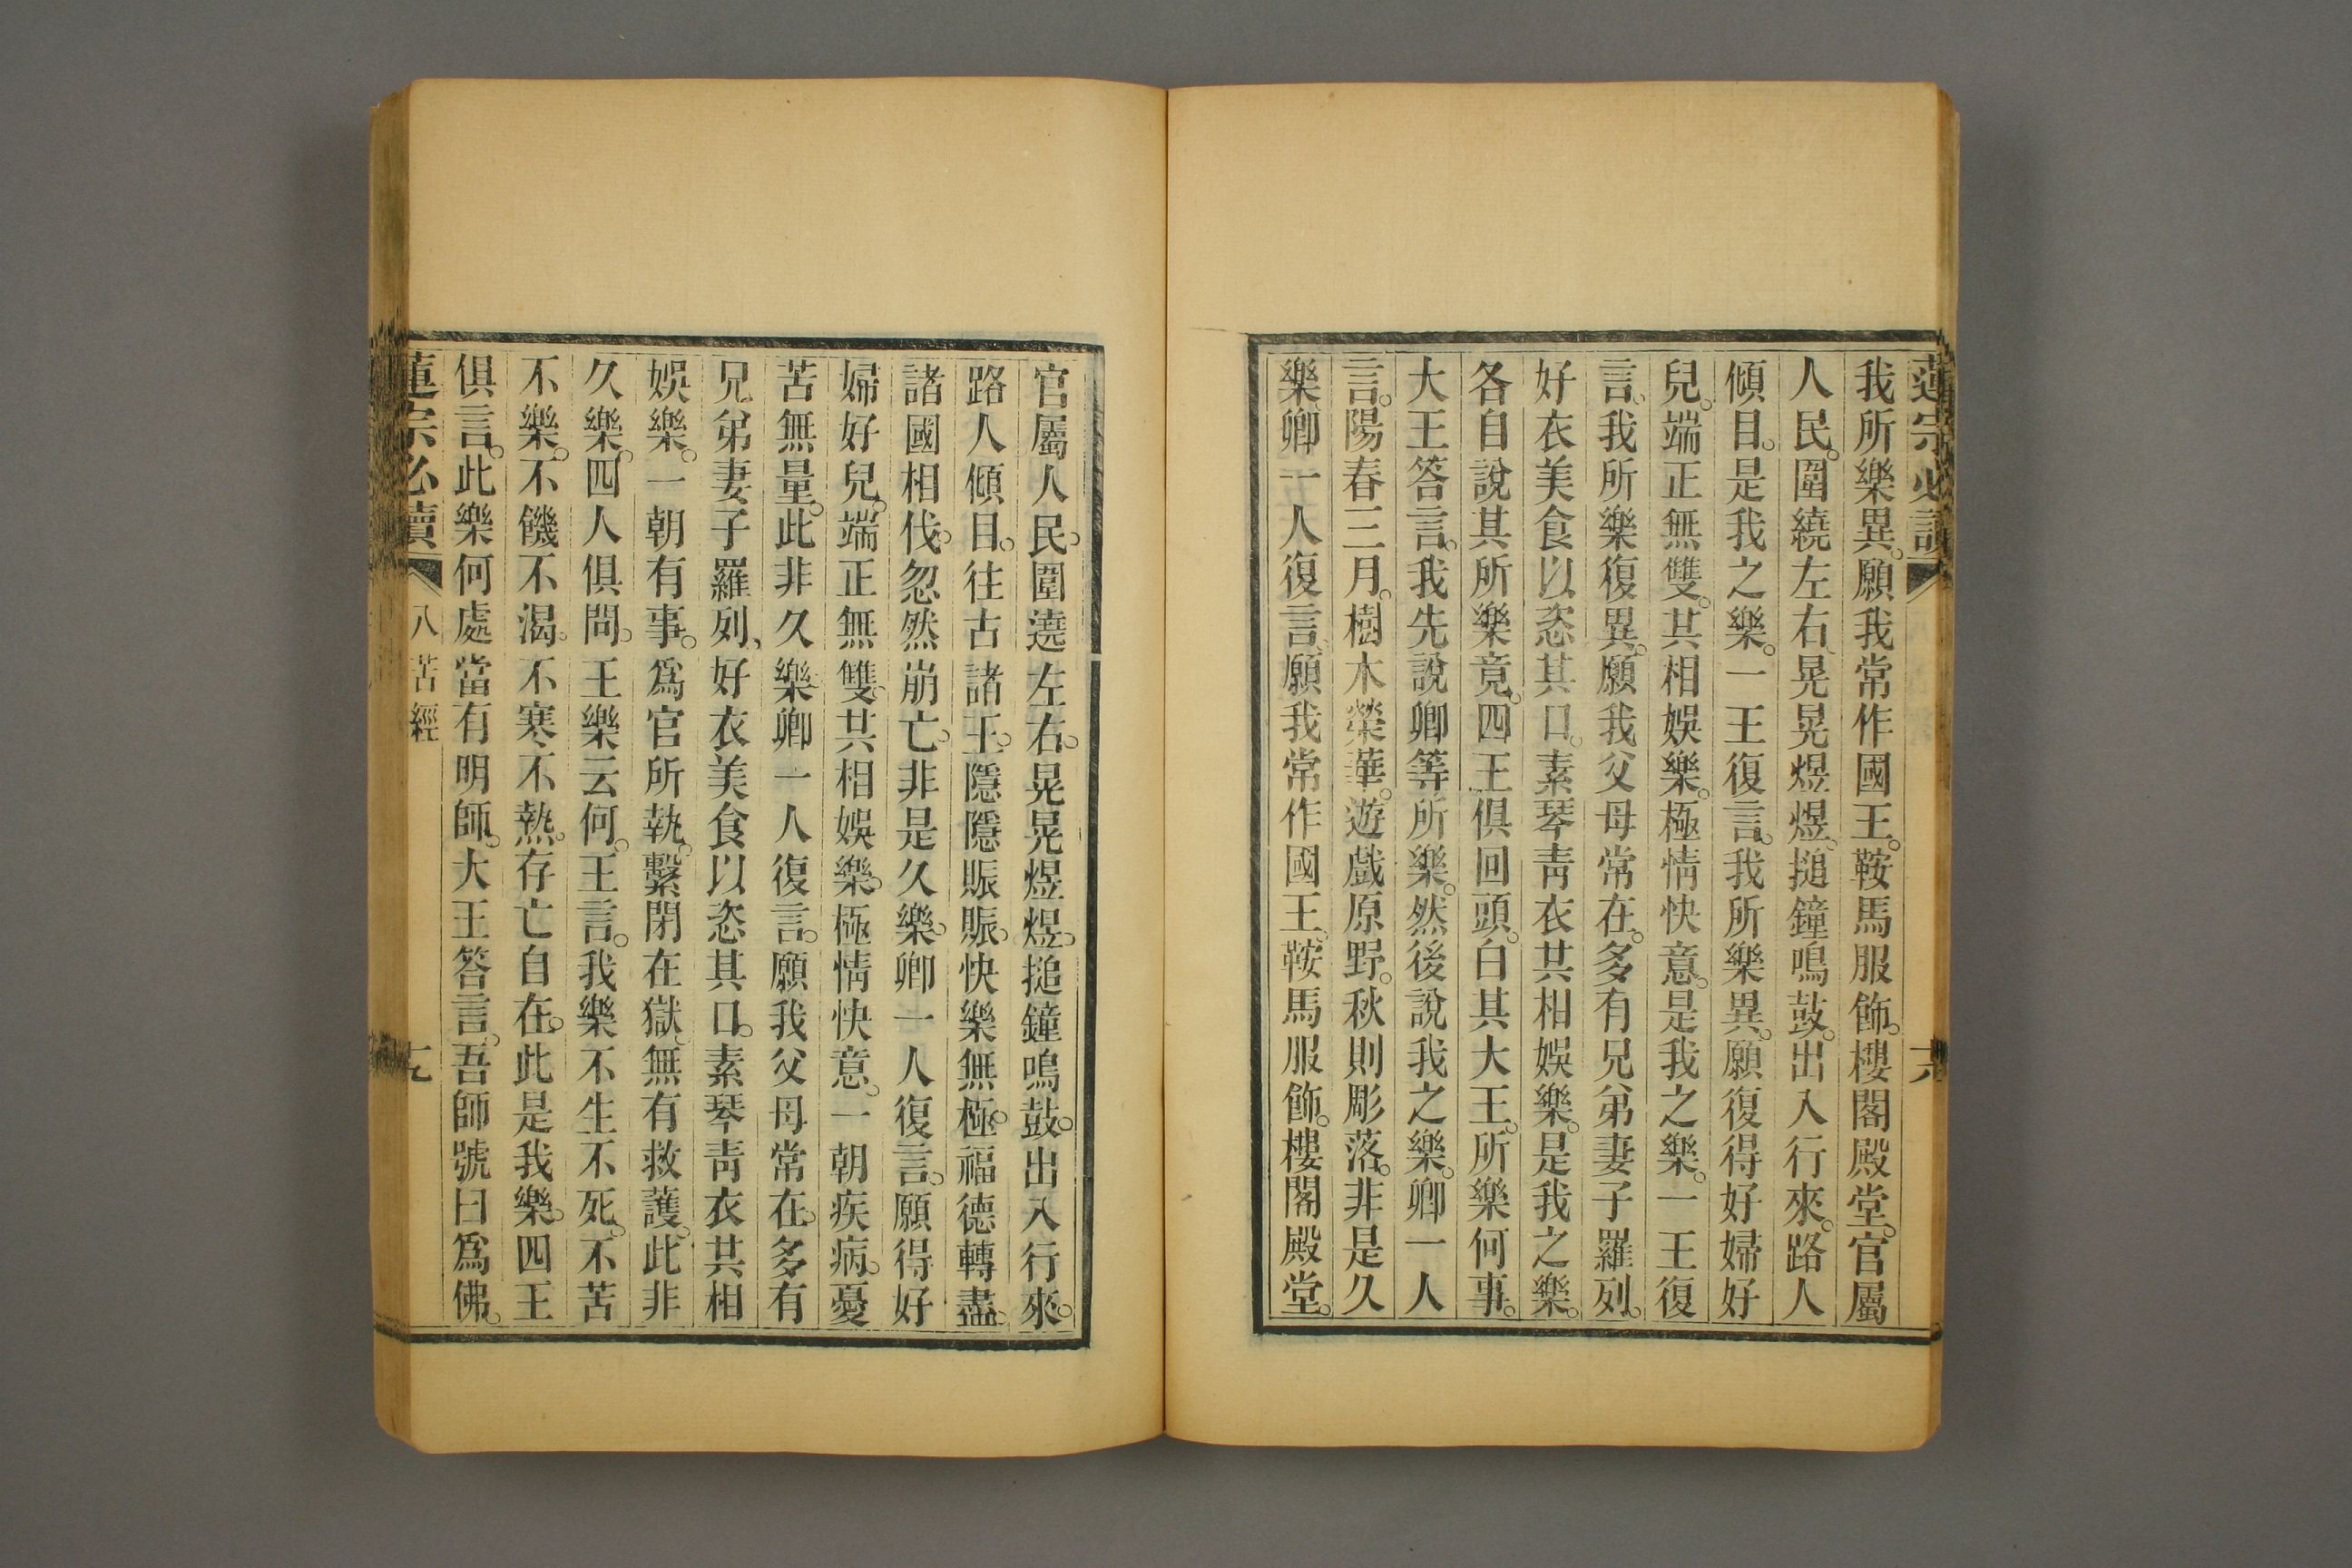 蓮宗必讀
十八
我所樂異。願我常作國王。鞍馬服飾。樓閣殿堂。官屬
人民。圍繞左右、晃晃煜煜、搥鐘鳴鼓。出入行來。路人
傾目。是我之樂。一王復言。我所樂異。願復得好婦好
兒。端正無雙。其相娛樂。極情快意。是我之樂。一王復
言、我所樂復異。願我父母常在。多有兄弟妻子羅列。
好衣美食以恣其口。素琴青衣共相娛樂。是我之樂。
各自說其所樂竟。四王俱回頭。白其大王。所樂何事。
大王答言。我先說卿等所樂。然後說我之樂。卿一人
言。陽春三月。樹木榮華。遊戲原野。秋則彫落。非是久
樂、卿一人復言、願我常作國王、鞍馬服飾。樓閣殿堂。
官屬人民。圍遶左右。晃晃煜煜。搥鐘鳴鼓。出入行來。
路人傾目。往古諸王。隱隱賑賑。快樂無極。福德轉盡。
諸國相伐。忽然崩亡。非是久樂。卿一人復言。願得好
婦好兒。端正無雙、共相娛樂。極情快意。一朝疾病。憂
苦無量。此非久樂卿一人復言。願我父母常在。多有
兄弟妻子羅列、好衣美食以恣其口。素琴青衣共相
娛樂。一朝有事。爲官所執。繫閉在獄、無有救護。此非
久樂。四人俱問。王樂云何。王言。我樂不生不死。不苦
不樂。不饑不渴。不寒不熱。存亡自在。此是我樂。四王
俱言。此樂何處當有明師。大王答言。吾師號曰爲佛。
蓮宗必讀
八苦經
十九